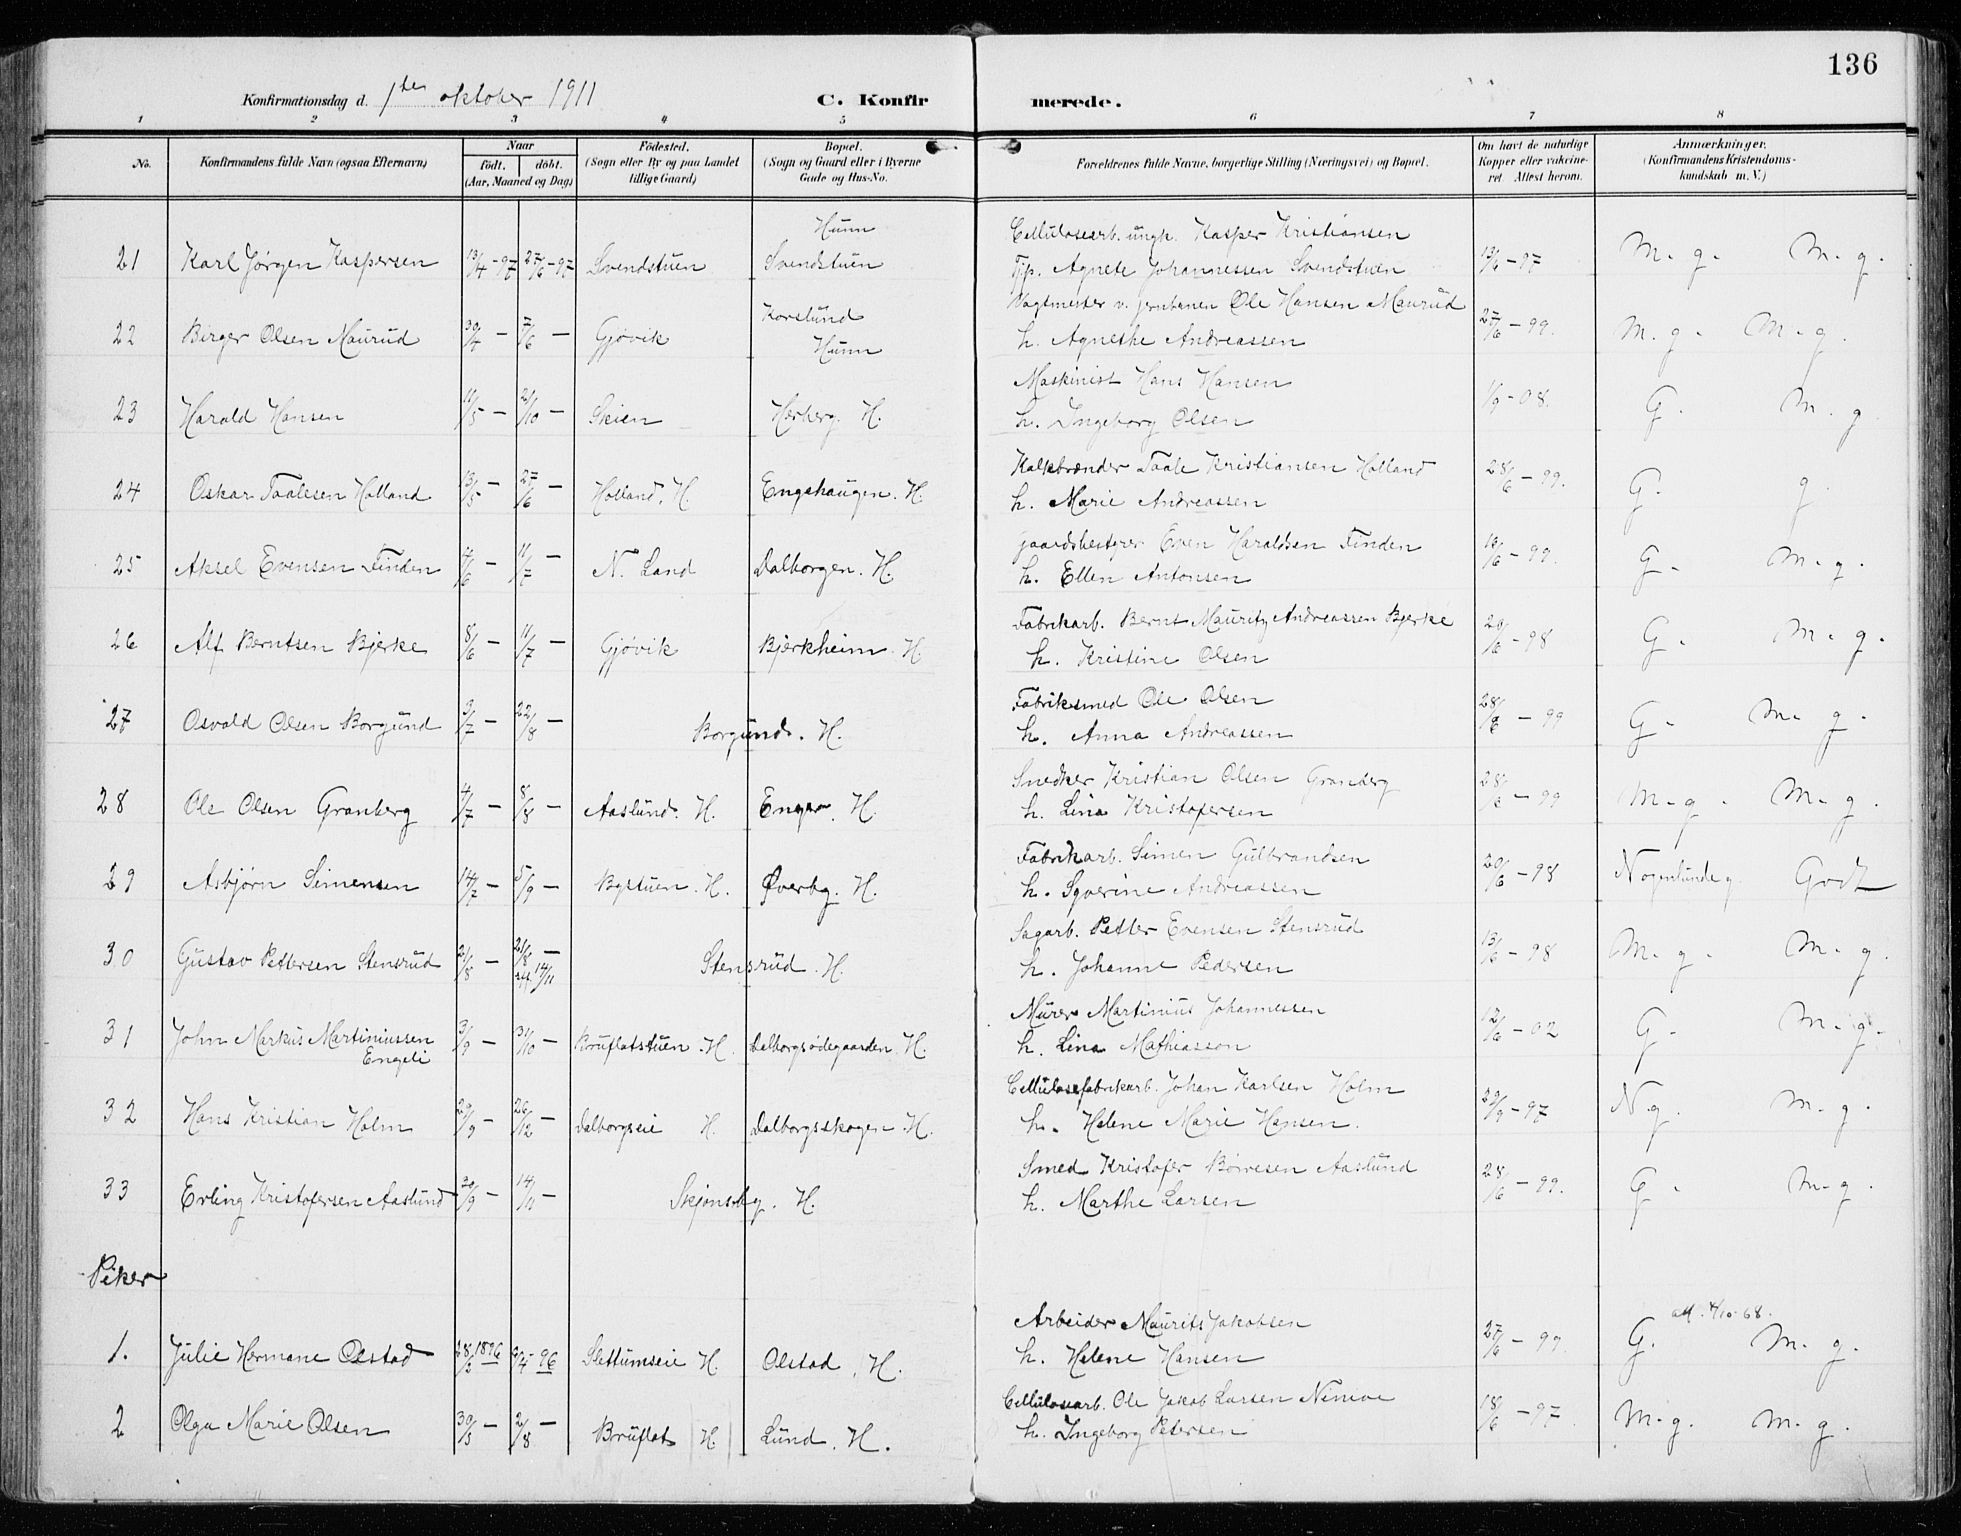 136
Konfirmationsdag d. 1ste oktober 1911 C. Konfirmerede.
1 2 3 4 5 6 7 8
No. Konfirmandens fulde Navn (ogsaa Efternavn) Naar födt. döbt. (Aar, Maaned og Dag) Födested. (Sogn eller By og paa Landet tillige Gaard) Bopæl. (Sogn og Gaard eller i Byerne Gade og Hus-No. Forældrenes fulde Navne, borgerlige Stilling (Næringsvei) og Bopæl. Om havt de naturlige Kopper eller vakcineret. Attest herom. Anmærkninger. (Konfirmandens Kristendomskundskab m. V.)
Hunn Cellulosearb. ungk. Kasper Kristiansen
21 Karl Jørgen Kaspersen 13/4-97 27/6-97 Svendstuen Svendstuen Tjp. Agnete Johannessen Svendstuen 13/6-97 M. g. M. g.
Korslund Vagtmester v. jernbanen Ole Hansen Maurud
22 Birger Olsen Maurud 30/4 - 7/6 - Gjøvik Hunn h. Agnethe Andreassen 27/6-99. M. g. M. g.
Maskinist Hans Hansen
23 Harald Hansen 11/5 - 2/10 - Skien Hærberg. H. h. Ingeborg Olsen 1/9-08. G. M. g
Kalkbrænder Taale Kristiansen Holland
24 Oskar Taalesen Holland 13/5 - 27/6 - Holland. H. Engehaugen. H. h. Marie Andreassen 28/6-99. G. g
Gaardsbestyrer Even Haraldsen Finden
25 Aksel Evensen Finden 4/6 - 11/7 - N. Land Dalborgen. H. h. Ellen Antonsen 18/6-99. G. M. g.
Fabrikarb. Bernt Mauritz Andreassen Bjerke
26 Alf Berntsen Bjerke 8/6 - 11/7 - Gjøvik Bjerkheim. H h. Kristine Olsen 20/6-98 G. M. g.
Fabriksmed Ole Olsen
27 Osvald Olsen Borgund 3/7 - 22/8 - Borgund. H. h. Anna Andreassen 28/6-99 G. M. g.
Snedker Kristian Olsen Granberg
28 Ole Olsen Granberg 4/7 - 8/8 - Aaslund. H. Enger. H. h. Lina Kristofersen 28/6-99 M. g. M. g.
Fabrikarb. Simen Gulbrandsen
29 Asbjørn Simensen 14/7 - 5/9 - Bystuen. H. Øverby. H. h. Syverine Andreassen 20/6-98 Nogenlunde g. Godt
Sagarb. Petter Evensen Stensrud
30 Gustav Pettersen Stensrud 2/8 - 21/8 - 14/11 Stensrud. H. h. Johanne Pedersen 13/6-98 M. g. M. g.
Murer Martinius Johannessen
31 John Markus Martiniussen Engeli 3/9 - 31/10 - Bruflatstuen. H. Dalborgsødegaarden. H. h. Lina Mathiasson 12/6-02 G. M. g.
Cellulosefabrikarb. Johan Karlsen Holm
32 Hans Kristian Holm 29/9 - 26/12 - Dalborgseie H. Dalborgsskogen H. h. Helene Marie Hansen. 29/9-97 Ng. M. g.
Smed Kristofer Børresen Aaslund
33 Erling Kristofersen Aaslund 30/9 - 14/11 - Skjønsby. H. h. Marthe Larsen 28/6-99. G. M. g.
Piker
Arbeider Maurits Jakobsen att. 4/10-68.
1. Julie Hermane Olstad 28/2 1896 4-96 Slettumseie H Olstad. H. h. Helene Hansen 27/6-99. G. M. g.
Cellulosearb. Ole Jakob Larsen
2 Olga Marie Olsen 30/3 - 2/8 - Bruflat H Lund. H. h. Ingeborg Petersen 18/6-97. M. g. M. g.